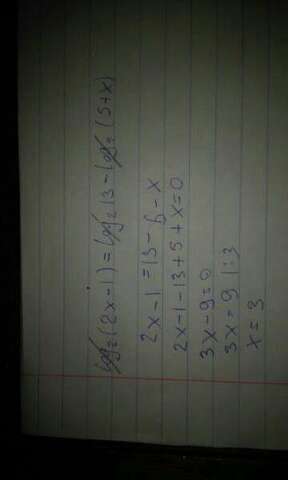 log₂(2x-1)=log₂13-log₂(5+x)
2x-1=13-5-x
2x-1-13+5+x=0
3x-9=0
3x=9 |:3
x=3